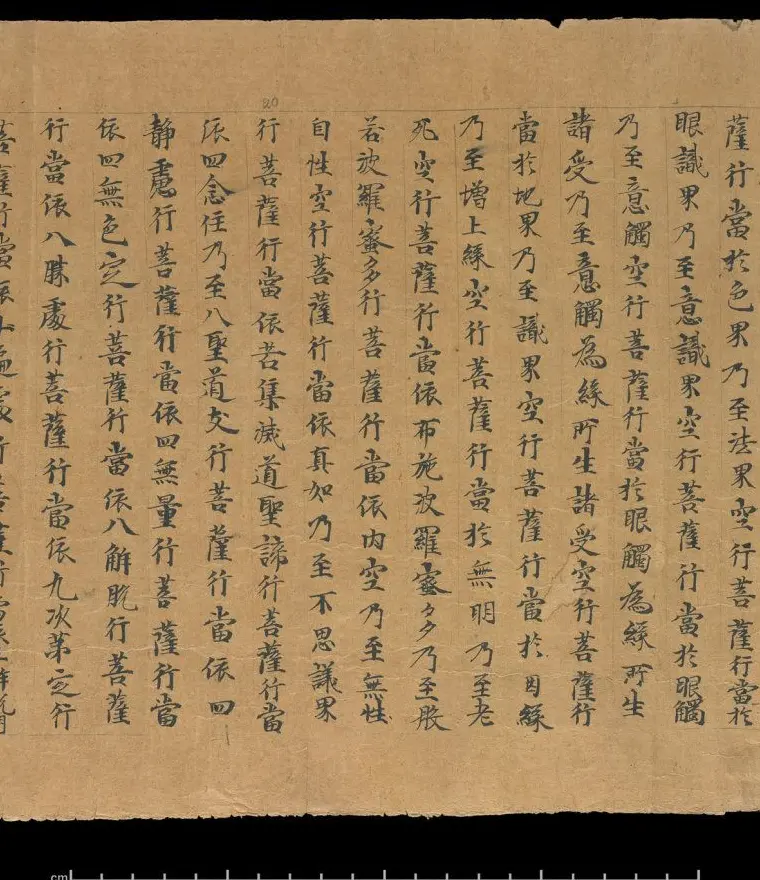 薩行當於色界乃至法界空行菩薩行當於
眼識界乃至意識界空行菩薩行當於眼觸
乃至意觸空行菩薩行當於眼觸為緣所生
諸受乃至意觸為緣所生諸受空行菩薩行
當於地界乃至識界空行菩薩行當於因緣
乃至增上緣空行菩薩行當於無明乃至老
死空行菩薩行當依布施波羅蜜多乃至般
若波羅蜜多行菩薩行當依內空乃至無性
自性空行菩薩行當依真如乃至不思議界
20
行菩薩行當依苦集滅道聖諦行菩薩行當
依四念住乃至八聖道支行菩薩行當依四
靜慮行菩薩行當依四無量行菩薩行當
依四無色定行菩薩行當依八解脫行菩薩
行當依八勝處行菩薩行當依九次第定行
菩薩行當依十遍處行菩薩行當依三解脫門
cm